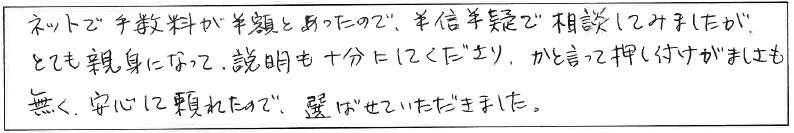 ネットで手数料が半額とあったので、半信半疑で相談してみましたが、
とても親身になって、説明も十分にしてくださり、かと言って押し付けがましさも
無く、安心して頼れたので、選ばせていただきました。